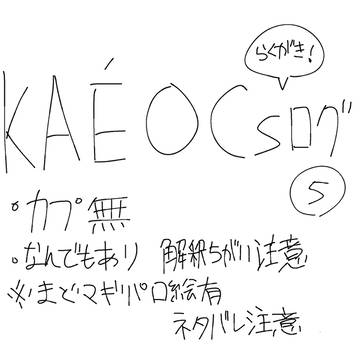 らくがき!
KAÉOCsログ
⑤
・カプ無
・なんでもあり 解釈ちがい注意
※まどマギパロ絵有
ネタバレ注意